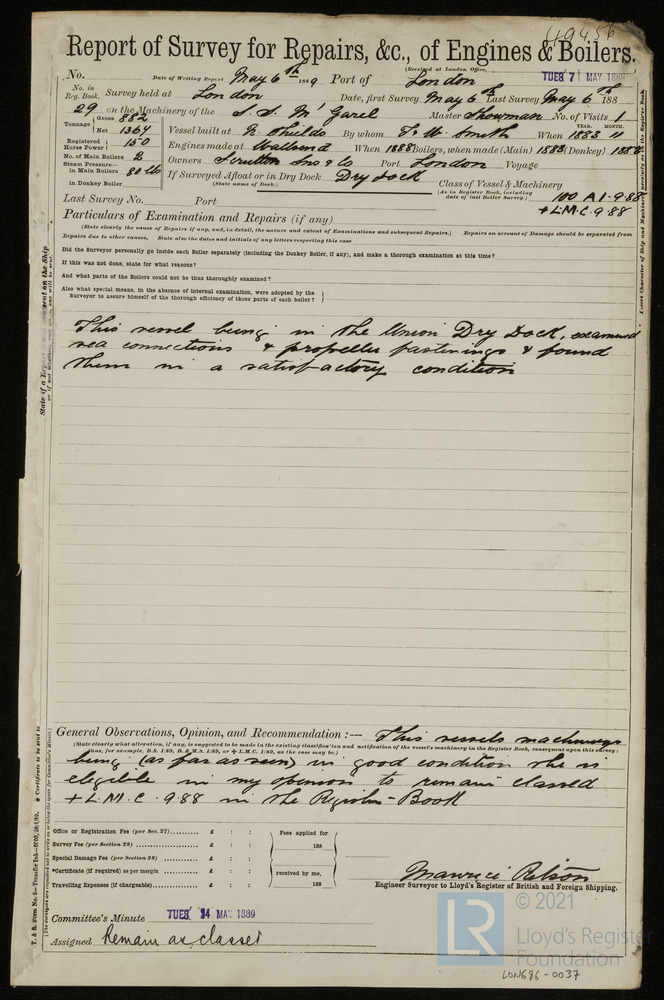 49456
Report of Survey for Repairs, &c., of Engines & Boilers.
(Received at London Office,
TUES 7 MAY 1889
No. Date of Writing Report May 6th 1889 Port of London
No. in Reg. Book. Survey held at London Date, first Survey May 6th Last Survey May 6th 188
29 on the Machinery of the S.S. McGarel Master Showman No. of Visits 1
Tonnage Gross 882 Net 1364 Vessel built at N. Shields By whom T & W Smith When YEAR. 1883 MONTH. 11
Registered Horse Power 150 Engines made at Wallsend When 1883 Boilers, when made (Main) 1883 (Donkey) 1882
No. of Main Boilers 2 Owners Scrutton Sons & Co Port London Voyage
Steam Pressure— in Main Boilers 80 lb If Surveyed Afloat or in Dry Dock Dry Dock
(State name of Dock.)
in Donkey Boiler Class of Vessel & Machinery
(As in Register Book, including date of last Boiler Survey.) 100 A1. 9.88
Last Survey No. Port + LMC. 9 88
Particulars of Examination and Repairs (if any)
(State clearly the cause of Repairs if any, and, in detail, the nature and extent of Examinations and subsequent Repairs.) Repairs on account of Damage should be separated from
Repairs due to other causes. State also the dates and initials of any letters respecting this case
Did the Surveyor personally go inside each Boiler separately (including the Donkey Boiler, if any), and make a thorough examination at this time?
If this was not done, state for what reasons?
And what parts of the Boilers could not be thus thoroughly examined?
Also what special means, in the absence of internal examination, were adopted by the
Surveyor to assure himself of the thorough efficiency of those parts of each boiler?
This vessel being in the Union Dry Dock, examined
sea connections & propeller fastenings & found
them in a satisfactory condition
General Observations, Opinion, and Recommendation :— This vessels machinery
(State clearly what alteration, if any, is suggested to be made in the existing classification and notification of the vessel's machinery in the Register Book, consequent upon this survey;
thus, for example, B.S. 1/89, B. & M.S. 1/89, or + L.M.C. 1/89, as the case may be.)
being (as far as seen) in good condition she is
eligible in my opinion to remain classed
+ L.M.C. 9.88 in the Register Book
Office or Registration Fee (per Sec. 27)......... £ : : Fees applied for
Survey Fee (per Section 28) ......... £ : : 188
Special Damage Fee (per Section 28) ......... £ : :
*Certificate (if required) as per margin ......... £ : : received by me,
Travelling Expenses (if chargeable)......... £ : : 188
Engineer Surveyor to Lloyd's Register of British and Foreign Shipping.
Committee's Minute TUES 14 MAY 1889
Assigned Remain as classed
T. & S. Form No. 9—Transfer Ink
* Certificate to be sent to
© 2021
LR
Lloyd's Register
Foundation
LON686-0037